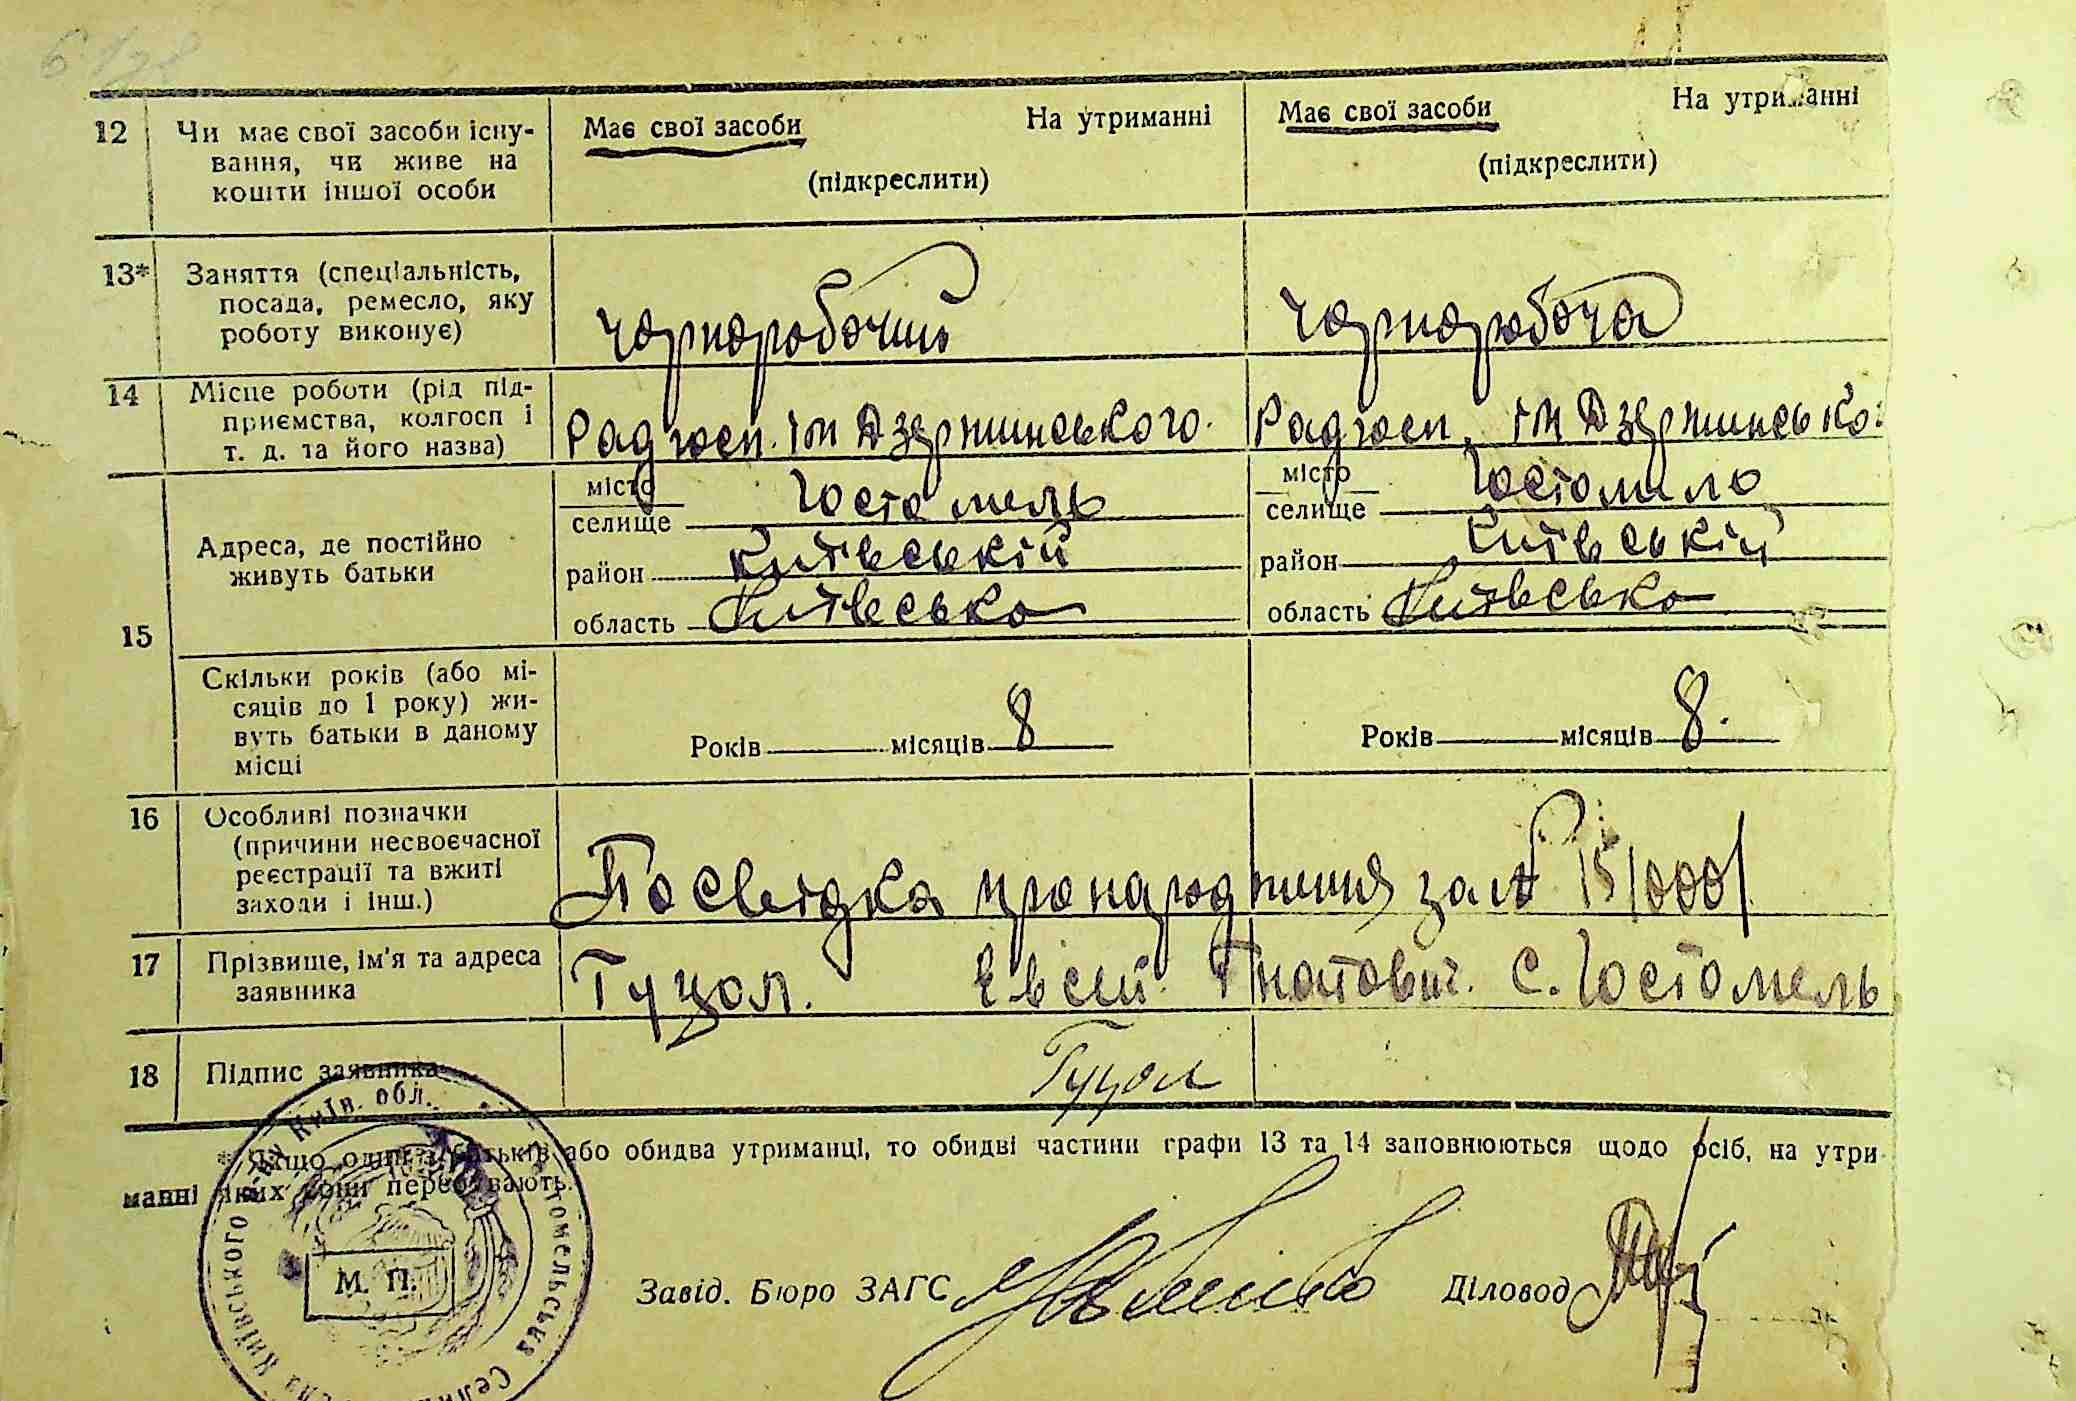 12 Чи має свої засоби існу- Має свої засоби На утриманні Має свої засоби На утриманні
вання, чи живе на
кошти іншої особи (підкреслити) (підкреслити)
13* Заняття (спеціальність,
посада, ремесло, яку
роботу виконує) Чорноробочий Чорноробоча
14 Місце роботи (рід під-
приємства, колгосп і Радгосп. ім Дзержинського. Радгосп. ім Дзержинсько.
т. д. та його назва)
місто Гостомель місто
селище селище
Адреса, де постійно район Київській район Київській
живуть батьки
область Київсько область Київсько
15
Скільки років (або мі-
сяців до 1 року) жи-
вуть батьки в даному Років місяців 8 Років місяців 8.
місці
16 Особливі позначки
(причини несвоєчасної
реєстрації та вжиті Посвідка про народження за №
заходи і інш.)
17 Прізвище, ім'я та адреса Гуцол. Евсей Гнатович. С. Гостомель
заявника
18 Підпис заявника Гуцол
* Якщо один з батьків або обидва утриманці, то обидві частини графи 13 та 14 заповнюються щодо осіб, на утри
манні яких вони перебувають.
Київ. обл.
Київського
Гостомельська
М. П.
Завід. Бюро ЗАГС Діловод